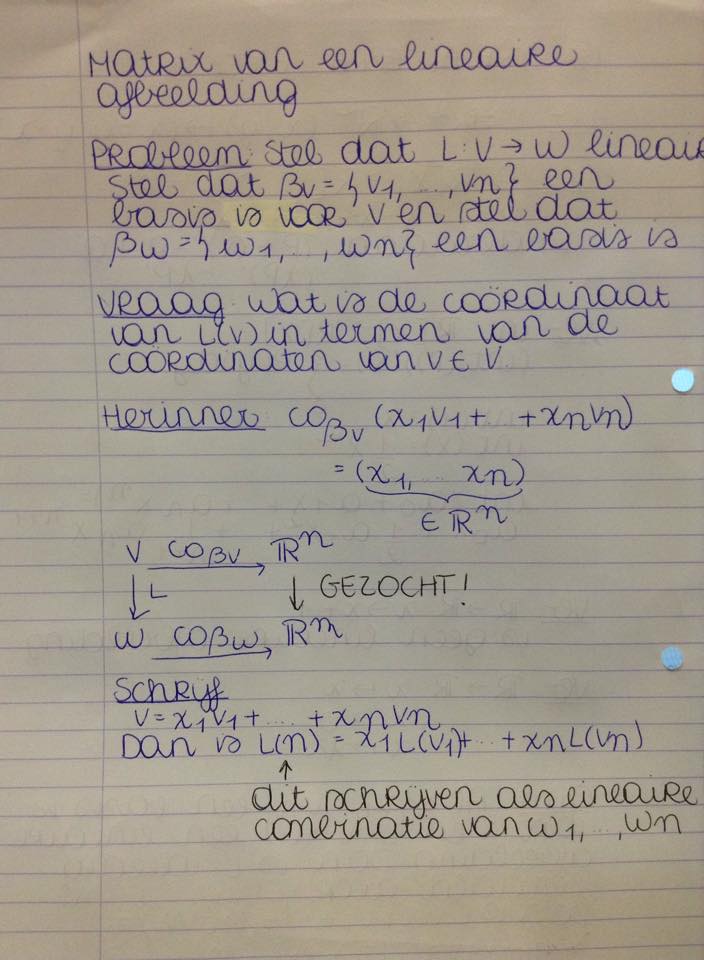 Matrix van een lineaire
afbeelding
Probleem: stel dat L: V → W lineair
stel dat βv = {v1, ..., vn} een
basis is voor V en stel dat
βw = {w1, ..., wn} een basis is
Vraag wat is de coördinaat
van L(v) in termen van de
coördinaten van v ∈ V
Herinner coβv (x1v1 + .. + xnvn)
= (x1, ... xn)
∈ ℝⁿ
V coβv → ℝⁿ
↓ L ↓ GEZOCHT!
W coβw → ℝᵐ
Schrijf
v = x1v1 + .... + xnvn
Dan is L(n) = x1L(v1) + .. + xnL(vn)
↑
dit schrijven als lineaire
comernatie van w1, ..., wn